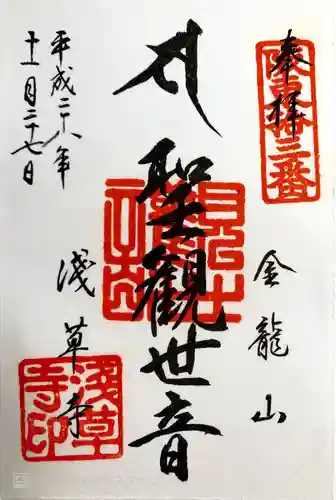 奉拝
坂東拾三番
金龍山
聖觀世音
平成二十八年
十一月二十七日
淺草寺
淺草
寺印